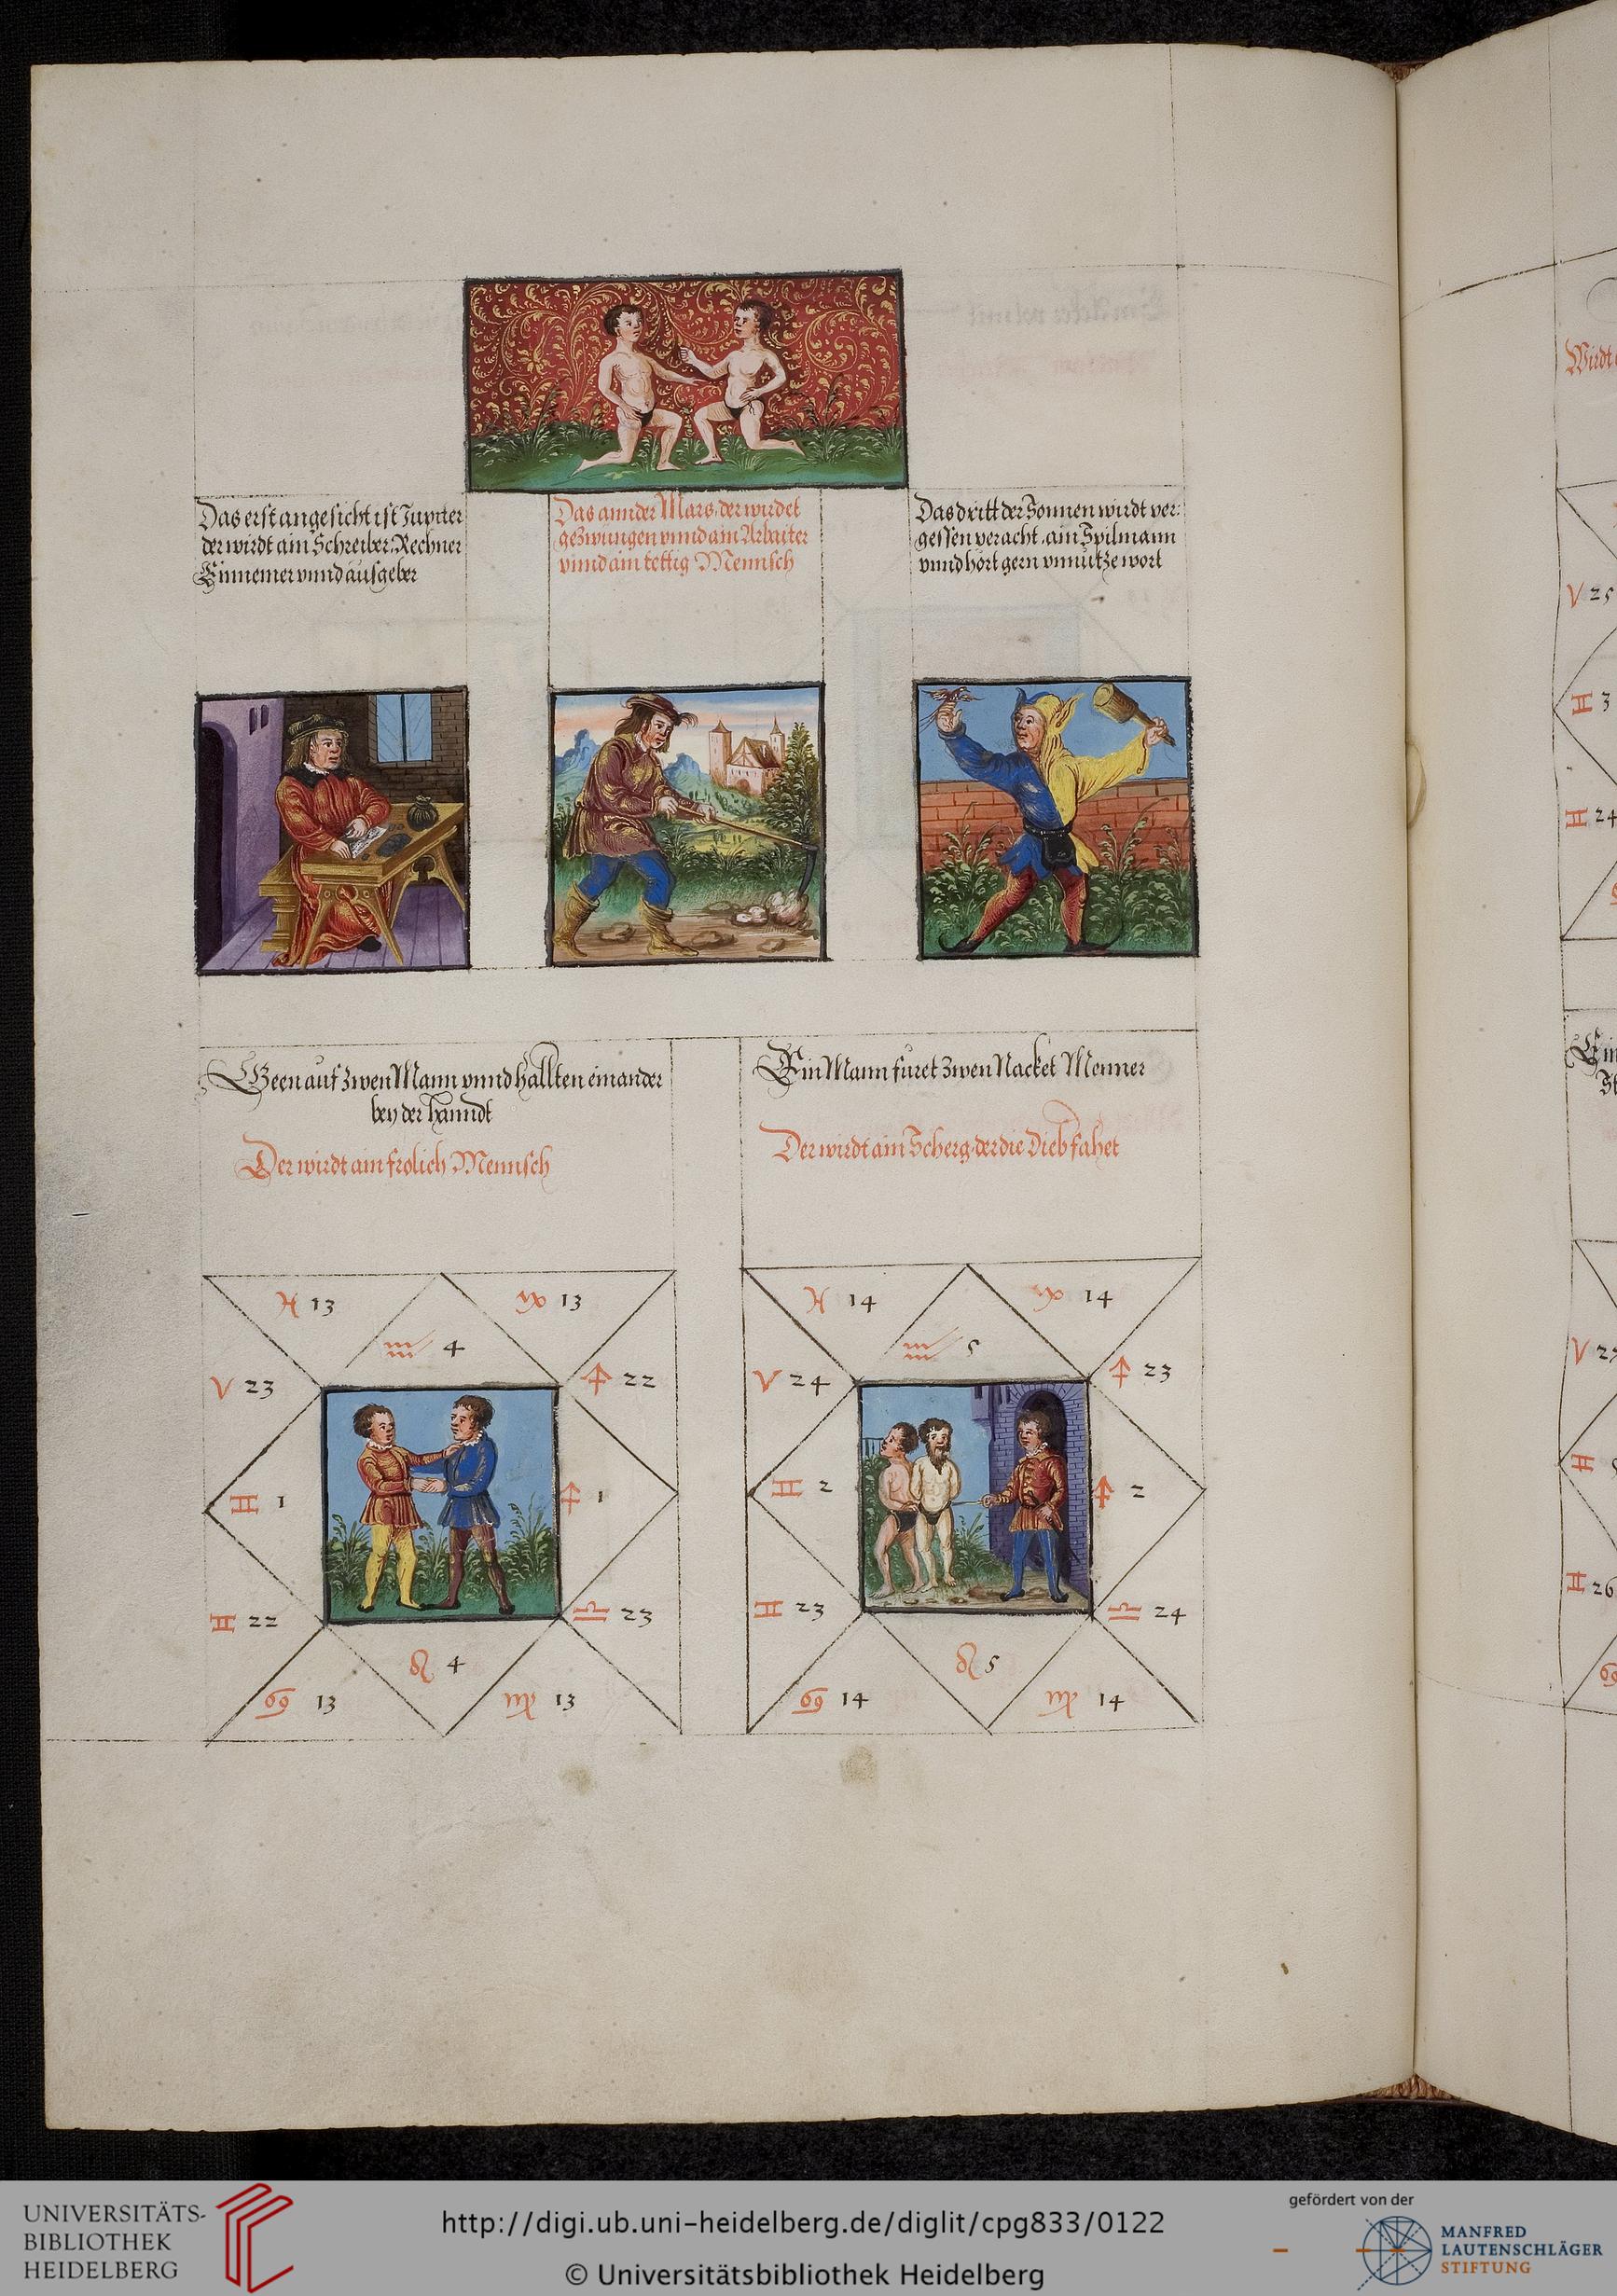 Das erst angesicht ist Jupiter
der wirdt ain Schreiber: Rechner
Einnemer vnnd ausgeber
Das annder Mars, der wirdet
gezwungen vnnd ain Arbaiter
vnnd ain tettig Mennsch
Das dritt der Sonnen wirdt ver:
gessen veracht. ain Spilmann
vnnd hört gern vnnütze wort
Geen auf zwen Mann vnnd hallten einander
bey der hanndt
Der wirdt ain frolich Mennsch
Ein Mann füret zwen Nacket Menner
Der wirdt ain Scherg, der die Dieb fahet
♓ 13
♑ 13
♒ 4
♈ 23
♐ 22
♊ 1
♐ 1
♊ 22
♎ 23
♌ 4
♋ 13
♍ 13
♓ 14
♑ 14
♒ 5
♈ 24
♐ 23
♊ 2
♐ 2
♊ 23
♎ 24
♌ 5
♋ 14
♍ 14
Wirdt
♈ 25
♊ 3
♊ 24
Ein
♊ 26
UNIVERSITÄTS-
BIBLIOTHEK
HEIDELBERG
http://digi.ub.uni-heidelberg.de/diglit/cpg833/0122
© Universitätsbibliothek Heidelberg
gefördert von der
MANFRED
LAUTENSCHLÄGER
STIFTUNG